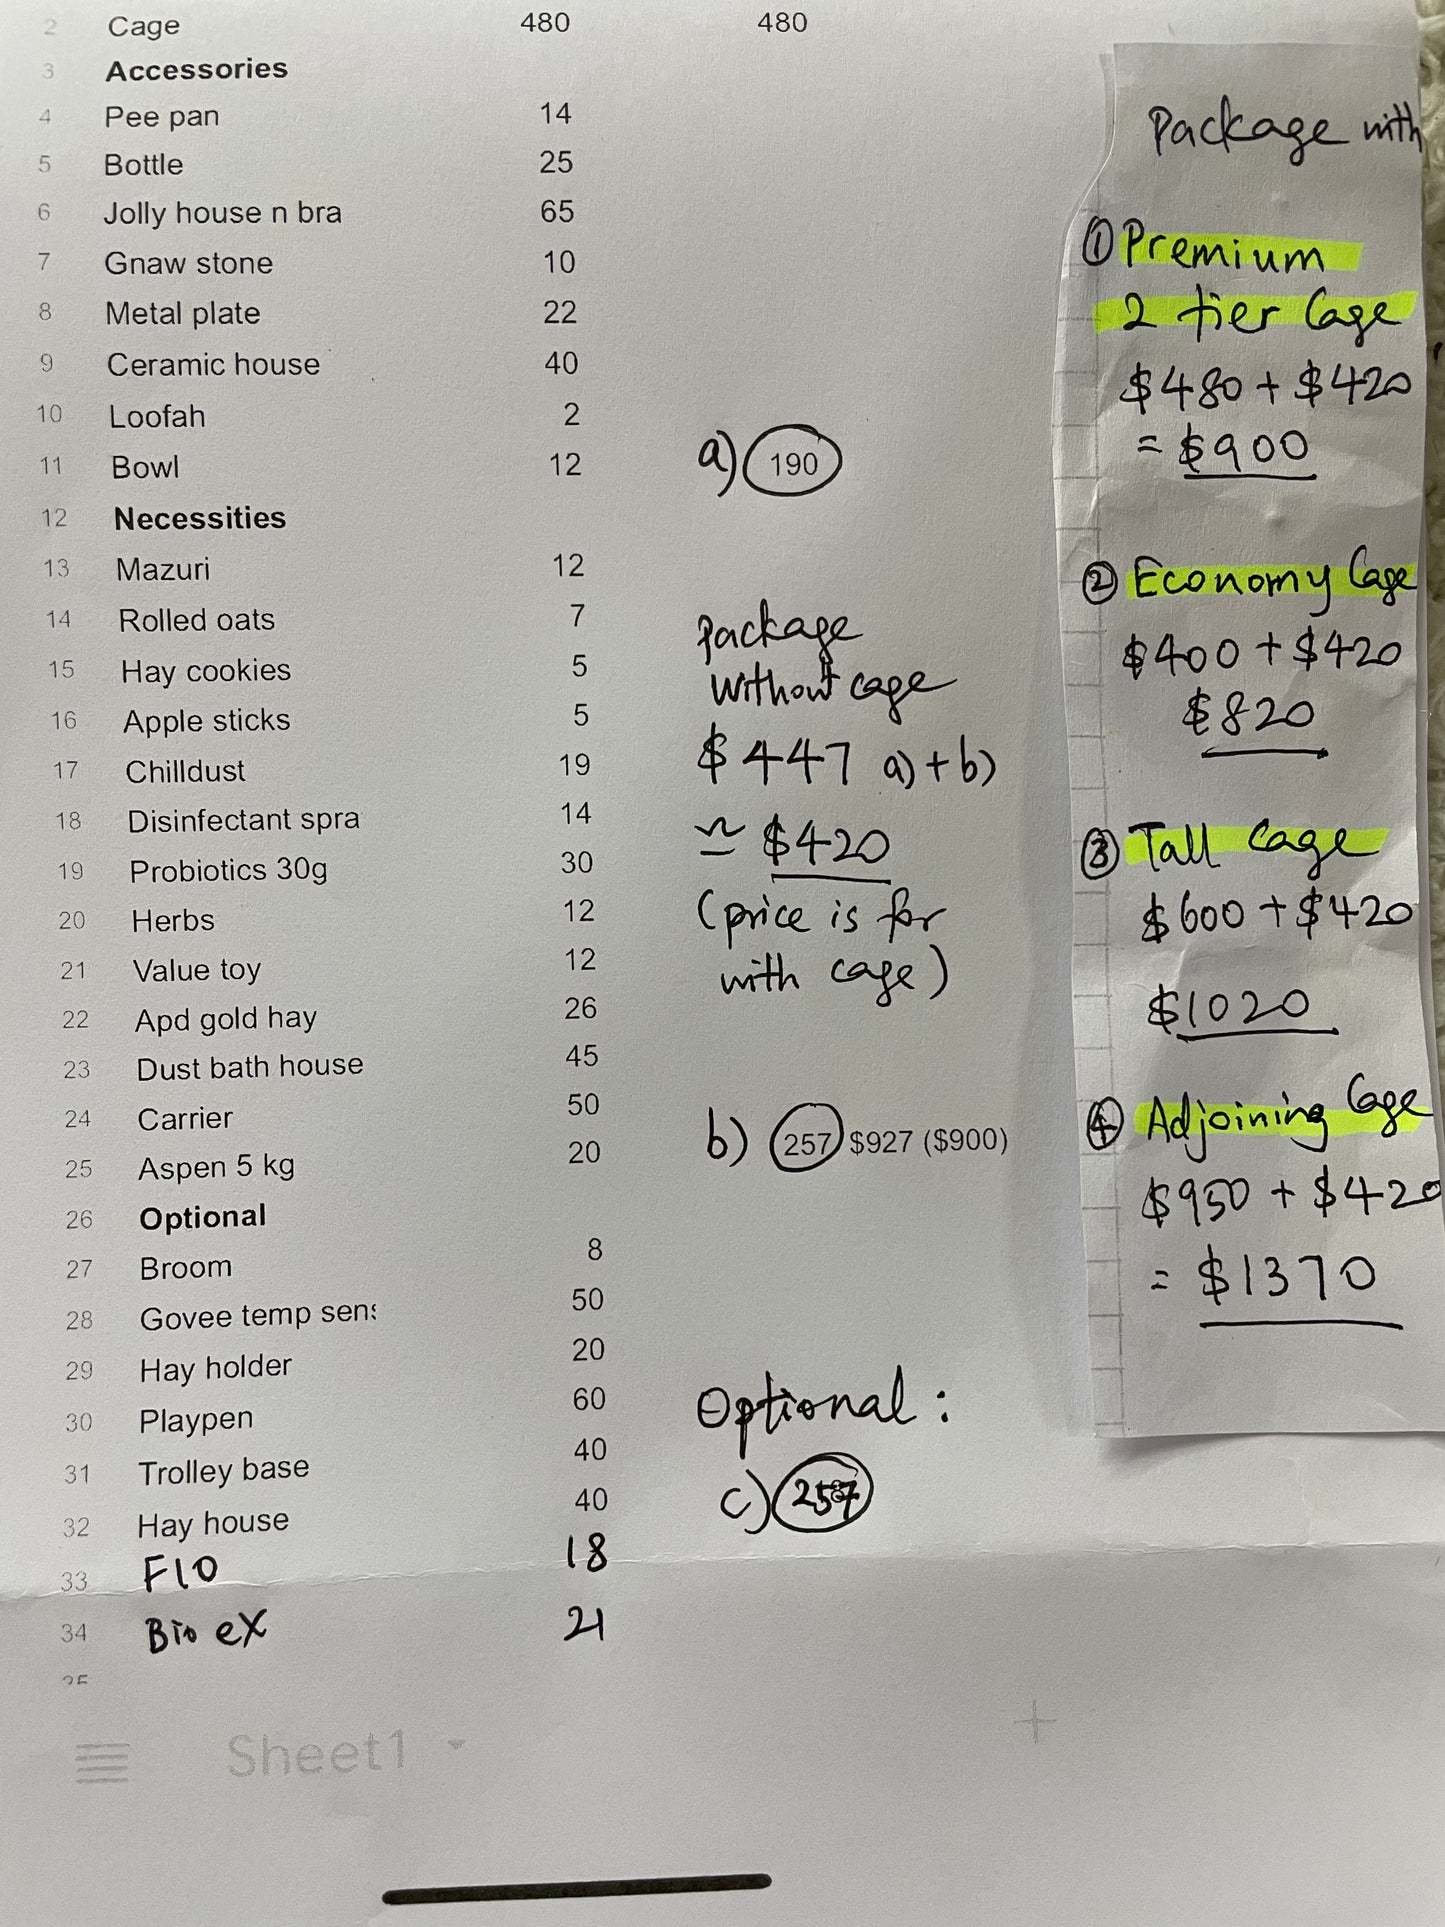 2 Cage 480 480
3 Accessories
4 Pee pan 14
5 Bottle 25
6 Jolly house n bra 65
7 Gnaw stone 10
8 Metal plate 22
9 Ceramic house 40
10 Loofah 2
11 Bowl 12
a) 190
12 Necessities
13 Mazuri 12
14 Rolled oats 7
15 Hay cookies 5
16 Apple sticks 5
17 Chilldust 19
18 Disinfectant spra 14
19 Probiotics 30g 30
20 Herbs 12
21 Value toy 12
22 Apd gold hay 26
23 Dust bath house 45
24 Carrier 50
25 Aspen 5 kg 20
Package
without cage
$447 a) + b)
≃ $420
(price is for
with cage)
b) 257 $927 ($900)
26 Optional
27 Broom 8
28 Govee temp sens 50
29 Hay holder 20
30 Playpen 60
31 Trolley base 40
32 Hay house 40
33 F10 18
34 Bio eX 21
35
Optional :
c)
Package with
① Premium
2 tier Cage
$480 + $420
= $900
② Economy Cage
$400 + $420
$820
③ Tall Cage
$600 + $420
$1020
④ Adjoining Cage
$950 + $420
= $1370
Sheet1